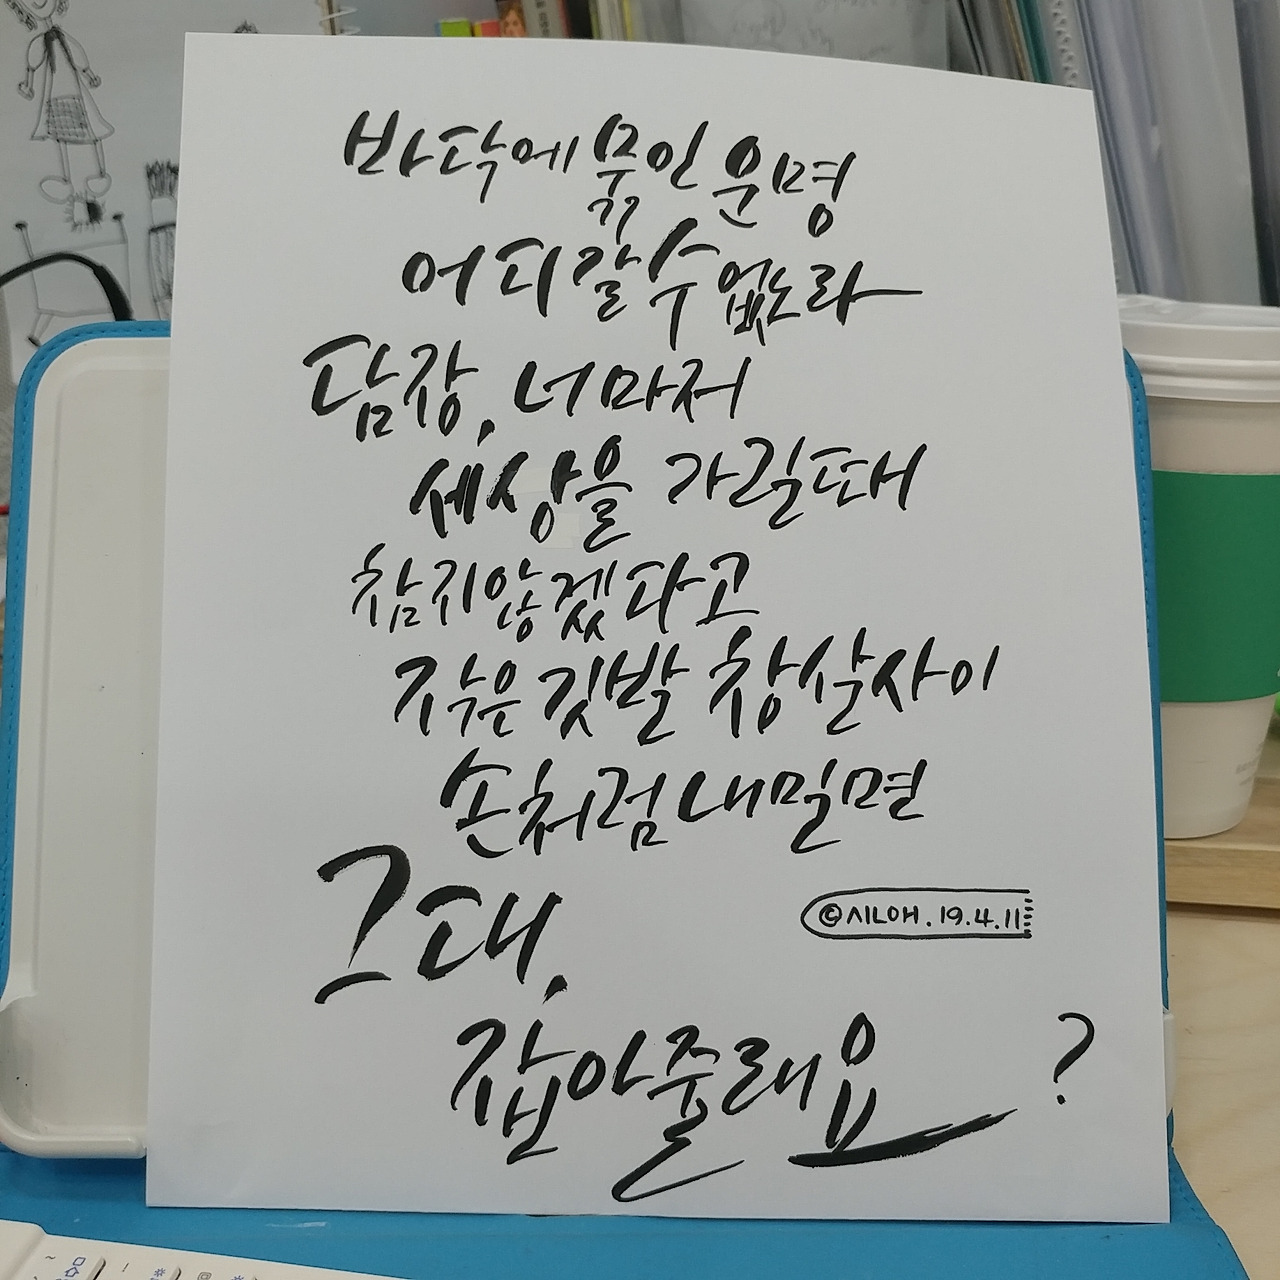 바닥에 묶인 운명
어디 갈 수 없노라
담장, 너마저
세상을 가릴 때
참지 않겠다고
작은 깃발 창살 사이
손처럼 내밀면
그대,
©시LOH.19.4.11
잡아줄래요?